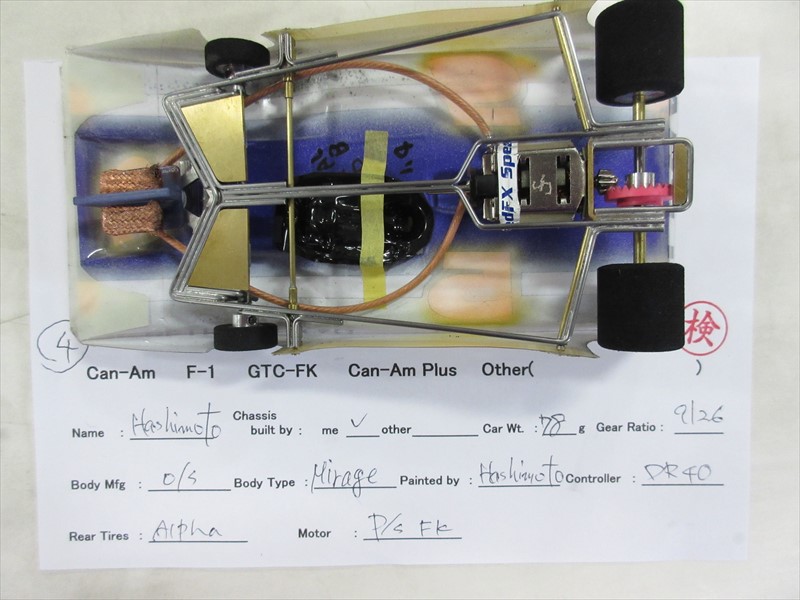 edFX Spee
検
4
Can-Am F-1 GTC-FK Can-Am Plus Other( )
Name : Hashimoto Chassis built by : me ✓ other Car Wt. : 78 g Gear Ratio : 9/26
Body Mfg : O/S Body Type : Mirage Painted by : Hashimoto Controller : DR40
Rear Tires : Alpha Motor : P/S FK